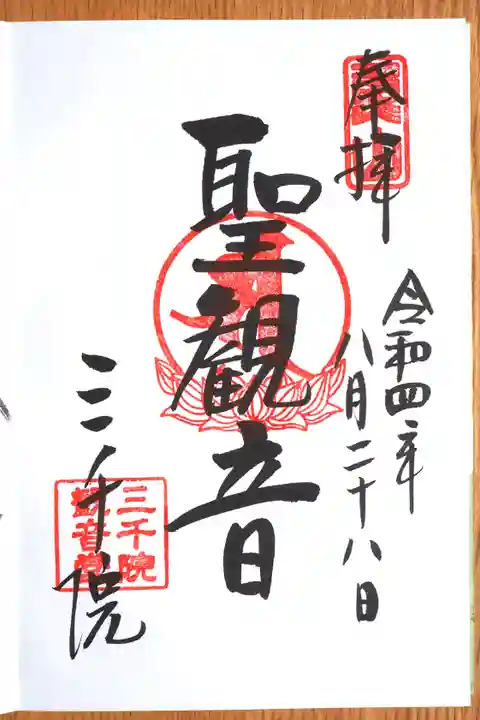 奉拝
令和四年
八月二十八日
聖観音
三千院
三千院
観音堂